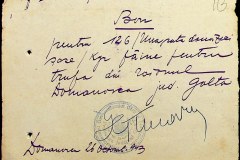 Bon
pentru 126 / Unasuta douăzeci
șase / Kgr. făină pentru
trupa din raionul
Domanovca jud. Golta
Domanovca 26